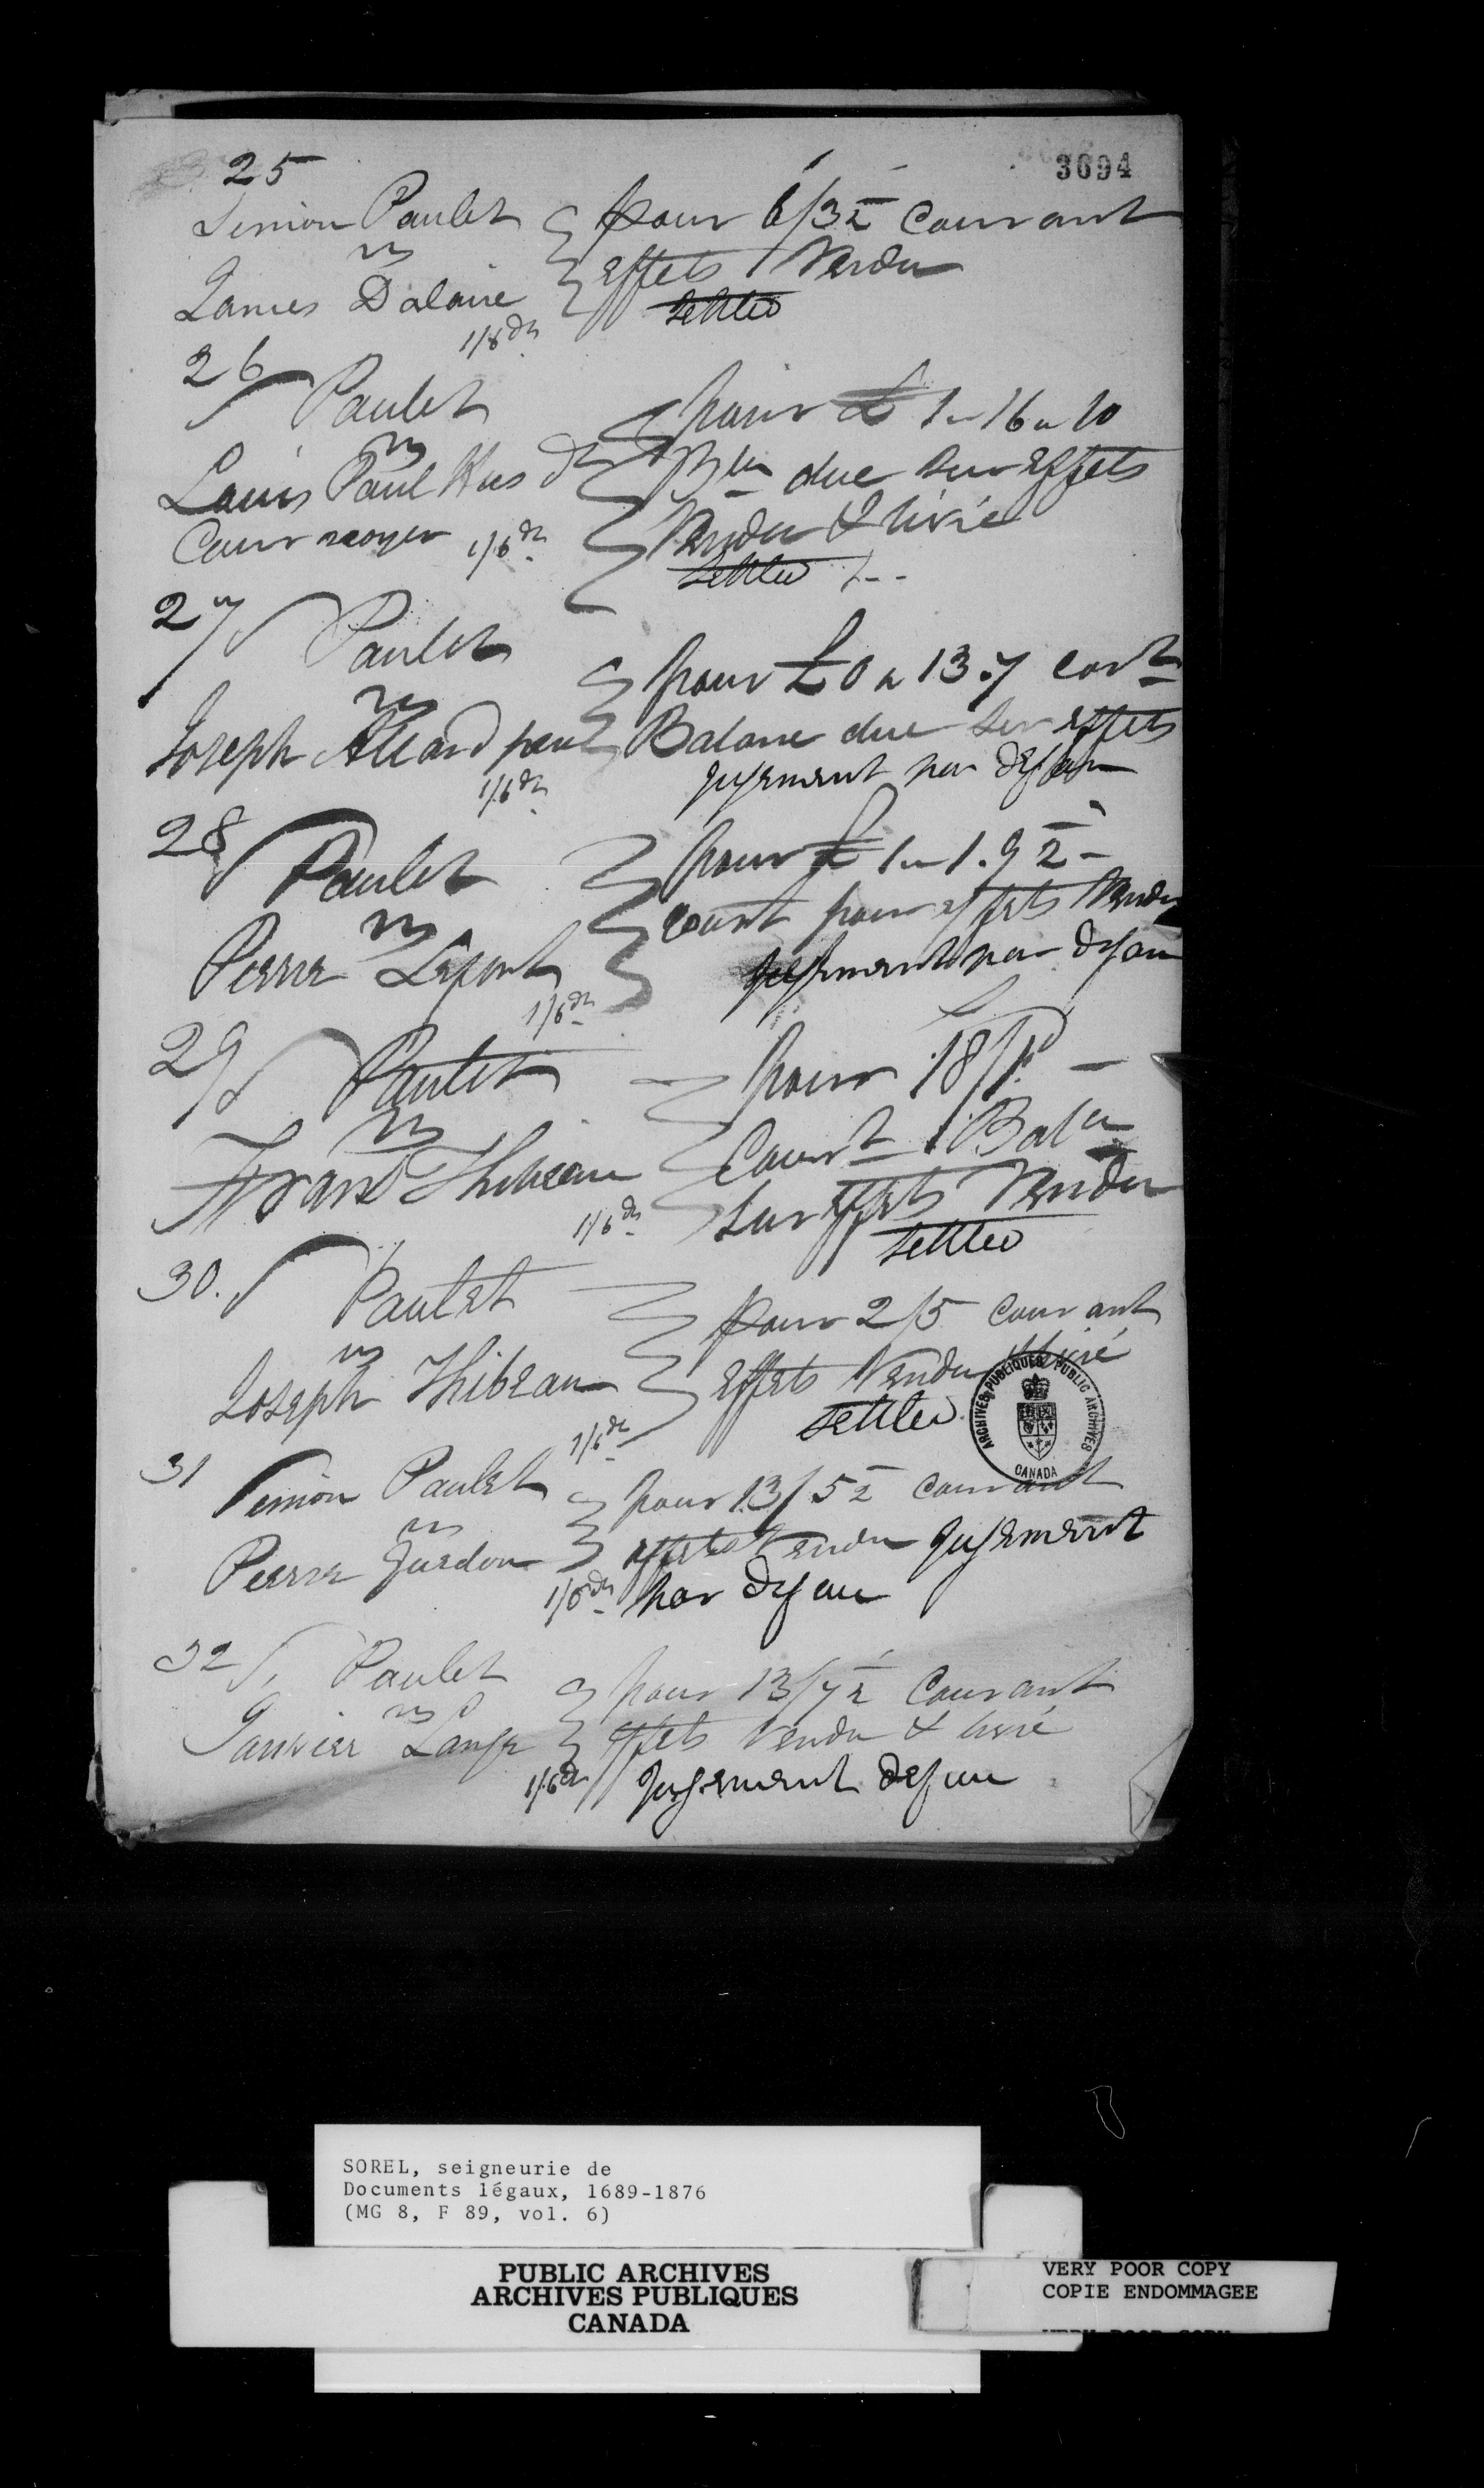 3694
25
Simon Paulet pour 6/3½ Courant
vs effets Vendu
James Dalaire settled
1/8 ds
26
S Paulet pour £ 1 " 16 " 10
vs
Louis Paul Hus dt Blce due sur Effets
Cournoyer 1/6 ds Vendu & livré
settled
27
S Paulet
vs pour £0 " 13.7 cort
Joseph Allard paul Balance due sur effets
1/6 ds jugement par defau
28
S Paulet pour £ 1 " 1.9½
vs court pour effets Vendu
Pierre Lepart jugement par defau
1/6 ds
29
S Paulet pour 18/1
vs Court Balce
Frans Thibeau sur effets Vendu
1/6 ds settled
30.
S Paulet pour 2/5 courant
vs
Joseph Thibeau effets Vendu & livré
1/6 ds settled
31
Simon Paulet pour 13/5½ courant
vs
Pierre Guedon effets Vendu jugement
1/6 ds par defau
32
S. Paulet pour 13/7½ Courant
vs
Janvier Lange effets Vendu & livré
1/6 ds jugement defau
ARCHIVES PUBLIQUES PUBLIC ARCHIVES
CANADA
SOREL, seigneurie de
Documents légaux, 1689-1876
(MG 8, F 89, vol. 6)
PUBLIC ARCHIVES
ARCHIVES PUBLIQUES
CANADA
VERY POOR COPY
COPIE ENDOMMAGEE
VERY POOR COPY